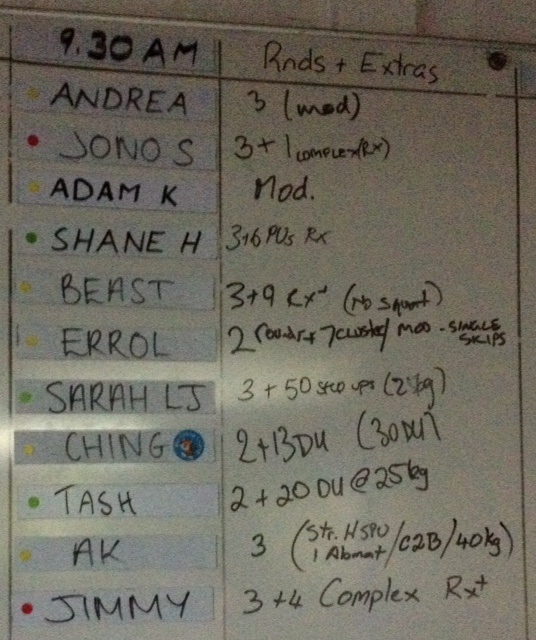 9.30 AM Rnds + Extras
ANDREA 3 (mod)
JONO S 3 + 1 complex (Rx)
ADAM K Mod.
SHANE H 3+6 PUs Rx
BEAST 3+9 Rx+ (No squat)
ERROL 2 rounds + 7 cluster/ MOD - SINGLE
SKIPS
SARAH LJ 3 + 50 step ups
CHING 2+13DU (30DU)
TASH 2 + 20 DU @ 25kg
AK 3 (Str. HSPU / C2B / 40kg)
1 Abmat
JIMMY 3 +4 Complex Rx+